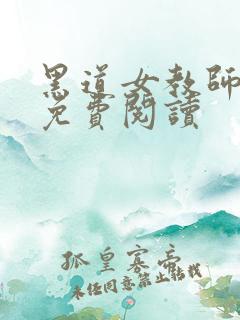 黑道女教師
免費閱讀
孤皇寡帝
未经同意禁止转载